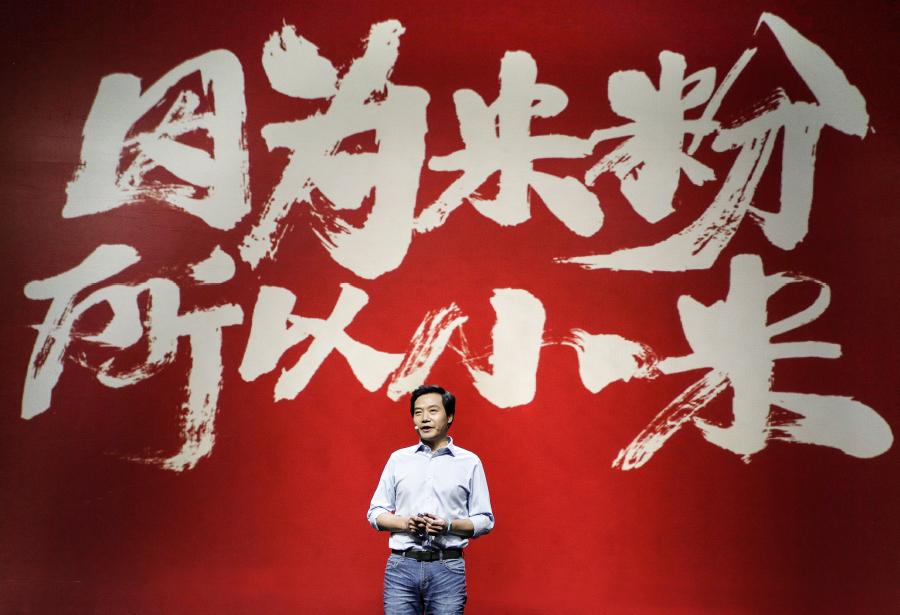 因为米粉
所以小米